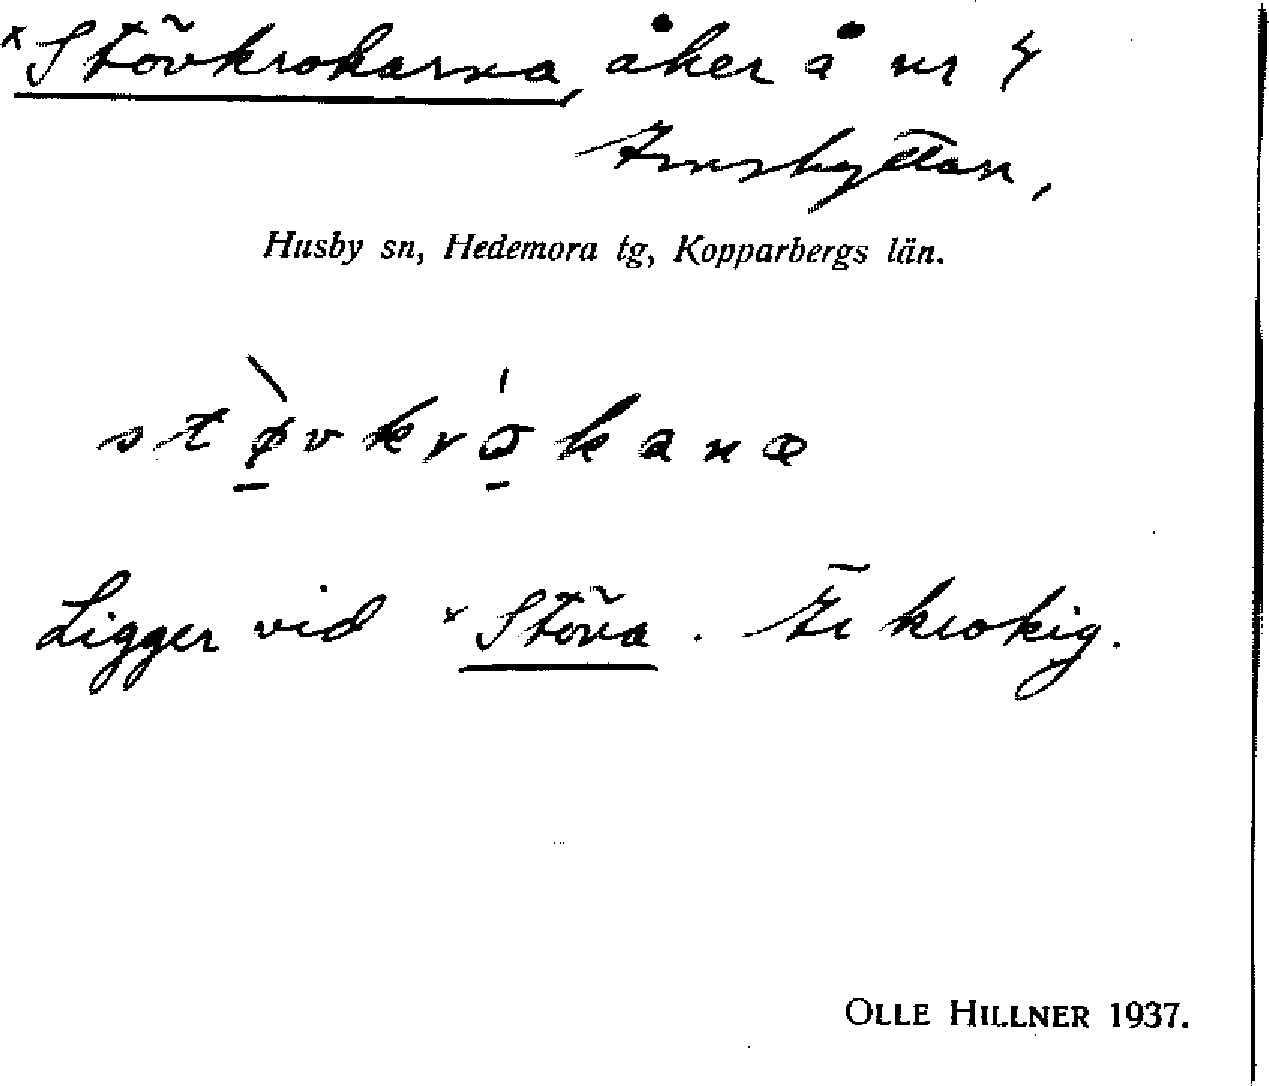 ×Stövkrokarna, åker å nr 4
Arnshyttan,
Husby sn, Hedemora tg, Kopparbergs län.
stø̠̀vkró̠kana
Ligger vid ×Stöva. Är krokig.
OLLE HILLNER 1937.